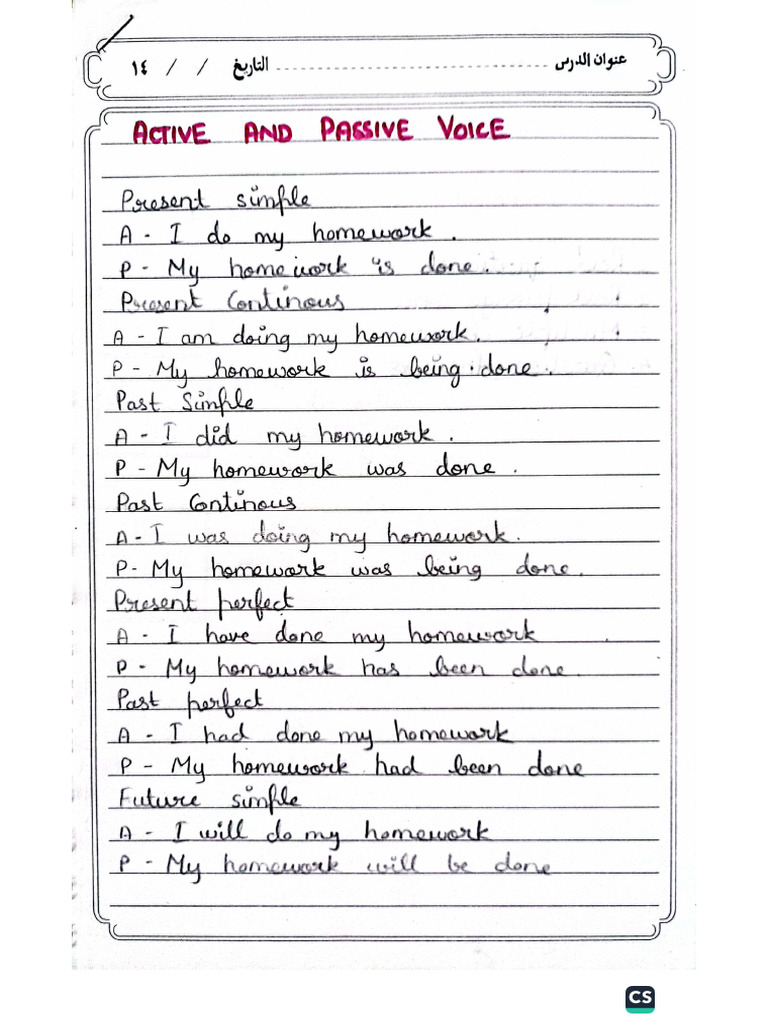 عنوان الدرس ........................................ التاريخ / / ١٤
ACTIVE AND PASSIVE VOICE
Present simple
A - I do my homework.
P - My homework is done.
Present Continous
A - I am doing my homework.
P - My homework is being done.
Past Simple
A - I did my homework.
P - My homework was done.
Past Continous
A - I was doing my homework.
P - My homework was being done.
Present perfect
A - I have done my homework
P - My homework has been done.
Past perfect
A - I had done my homework
P - My homework had been done
Future simple
A - I will do my homework
P - My homework will be done
CS